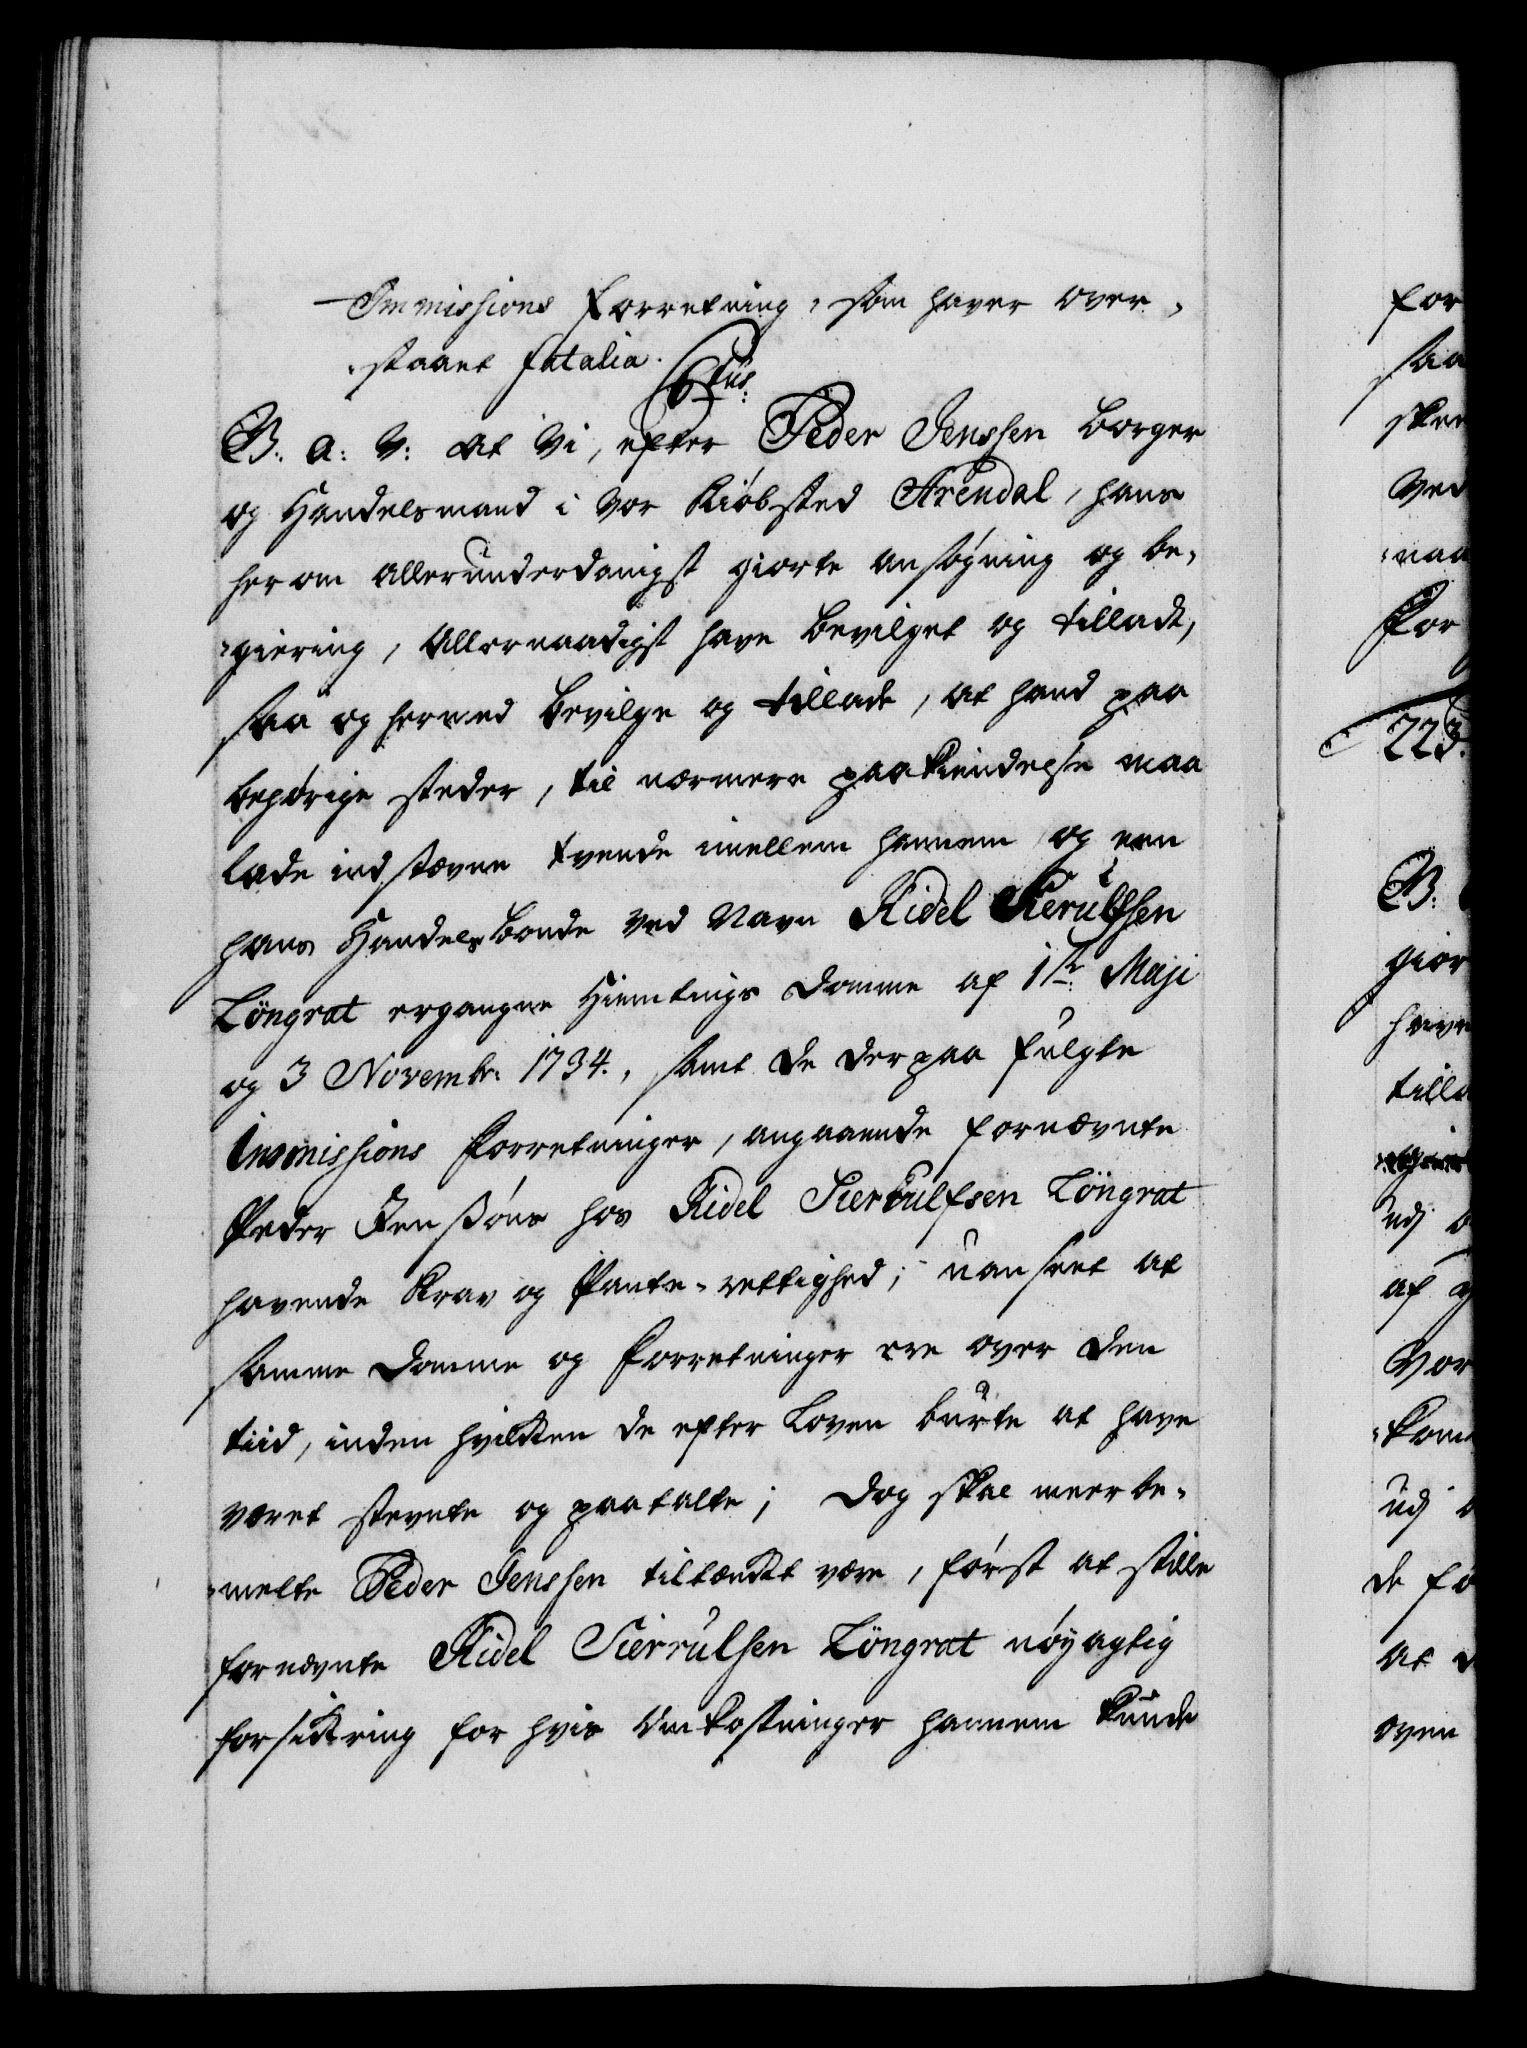 Immissions Forretning, som haver over-
staaet fatalia.
C6tus:
B. a: V: at Vi, efter Peder Jenssen borger
og Handelsmand i vor Kiøbsted Arendal, hans
herom allerunderdanigst giorte ansøgning og be-
giering, Allernaadigst have bevilget og tilladt,
saa og hermed bevilge og tillade, at hand paa
behørige steder, til nærmere paakiendelse maa
lade indstævne tvende imellem hannem og een
hans Handels bonde ved Navn Kidel Sierulfsen
Löngrat ergangne Hiemtings Domme af 1ste Maji
og 3 Novembr: 1734., samt de derpaa fulgte
Immissions Forretninger, angaaende fornævnte
Peder Jenssøns hos Kidel Sierrulfsen Löngrat
havende Krav og Pante-rettighed; uanseet at
samme Domme og Forretninger ere over den
tiid, inden hvilken de efter Loven burte at have
været stevnte og paatalte; Dog skal meerbe-
melte Peder Jenssen tiltænkt være, først at stille
fornævnte Kidel Sierrulsen Löngrat nøyagtig
forsikring for hvis Omkostninger hannem kunde
for
saa
skee
Ved
naa
For
223.
B:
gior
have
tilla
udj
af
Vor
kom
udj
de fø
at
oven